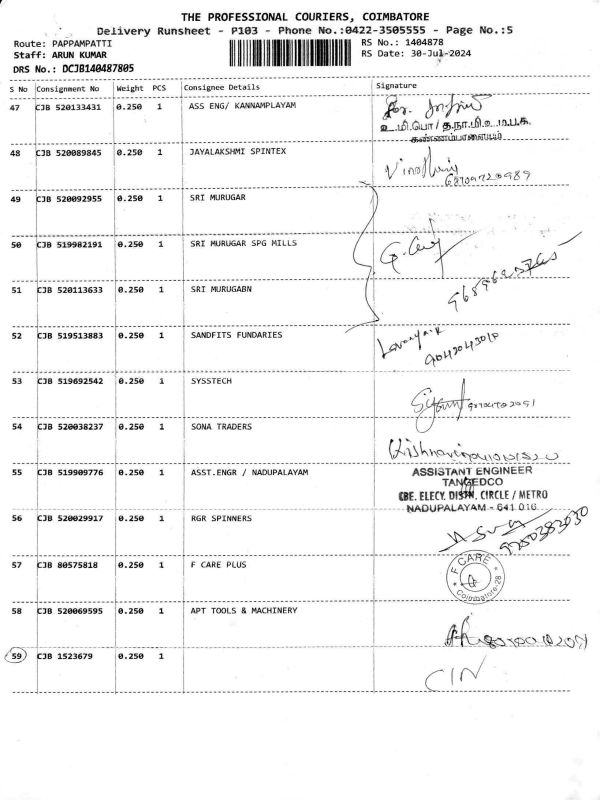 THE PROFESSIONAL COURIERS, COIMBATORE
Delivery Runsheet - P103 - Phone No.:0422-3505555 - Page No.:5
Route: PAPPAMPATTI
RS No.: 1404878
Staff: ARUN KUMAR
RS Date: 30-Jul-2024
DRS No.: DCJB140487805
S No Consignment No Weight PCS Consignee Details Signature
47 CJB 520133431 0.250 1 ASS ENG/ KANNAMPLAYAM
உ.மி.பொ/த.நா.மி.உ.ம.பக.
கண்ணம்பாளையம்
48 CJB 520089845 0.250 1 JAYALAKSHMI SPINTEX
49 CJB 520092955 0.250 1 SRI MURUGAR
50 CJB 519982191 0.250 1 SRI MURUGAR SPG MILLS
51 CJB 520113633 0.250 1 SRI MURUGABN
52 CJB 519513883 0.250 1 SANDFITS FUNDARIES
53 CJB 519692542 0.250 1 SYSSTECH
54 CJB 520038237 0.250 1 SONA TRADERS
55 CJB 519909776 0.250 1 ASST.ENGR / NADUPALAYAM
ASSISTANT ENGINEER
TANGEDCO
CBE. ELECY. DISTN. CIRCLE / METRO
NADUPALAYAM - 641 016
56 CJB 520029917 0.250 1 RGR SPINNERS
9750383030
57 CJB 80575818 0.250 1 F CARE PLUS
* F CARE *
Coimbatore-28
58 CJB 520069595 0.250 1 APT TOOLS & MACHINERY
59 CJB 1523679 0.250 1
CIN